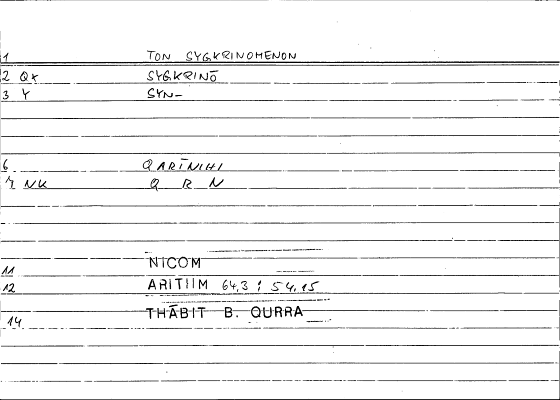 1 TON SYGKRINOMENON
2 QX SYGKRINŌ
3 Y SYN-
6 QARĪNIHI
7 NK Q R N
11 NICOM
12 ARITHM 64,3 : 54,15
14 THĀBIT B. QURRA